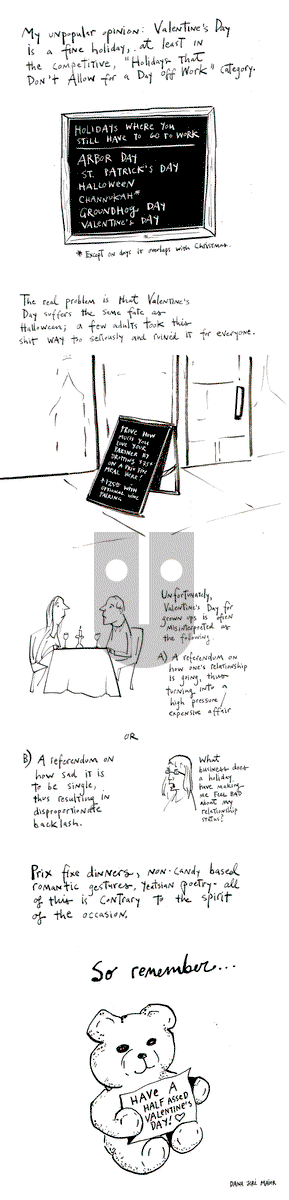 My unpopular opinion: Valentine's Day
is a fine holiday, at least in
the competitive, "Holidays That
Don't Allow for a Day off Work" category.
HOLIDAYS WHERE YOU
STILL HAVE TO GO TO WORK
ARBOR DAY
ST. PATRICK'S DAY
HALLOWEEN
CHANNUKAH*
GROUNDHOG DAY
VALENTINE'S DAY
* Except on days it overlaps with Christmas.
The real problem is that Valentine's
Day suffers the same fate as
Halloween; a few adults took this
shit WAY too seriously and ruined it for everyone.
PROVE HOW
MUCH YOU
LOVE YOUR
PARTNER BY
DROPPING $250
ON A PRIX FIXE
MEAL HERE!
+$250 WITH
OPTIONAL WINE
PAIRING
Unfortunately,
Valentine's Day for
grown ups is often
misinterpreted as
the following.
A) A referendum on
how one's relationship
is going, thus
turning into a
high pressure/
expensive affair
OR
B) A referendum on
how sad it is
to be single,
thus resulting in
disproportionate
backlash.
What
business does
a holiday
have making
me FEEL BAD
about my
relationship
status?
Prix fixe dinners, non-candy based
romantic gestures, Yeatsian poetry- all
of this is CONTRARY to the spirit
of the occasion.
So remember...
HAVE A
HALF ASSED
VALENTINE'S
DAY! ♡
DANA JERI MAIER